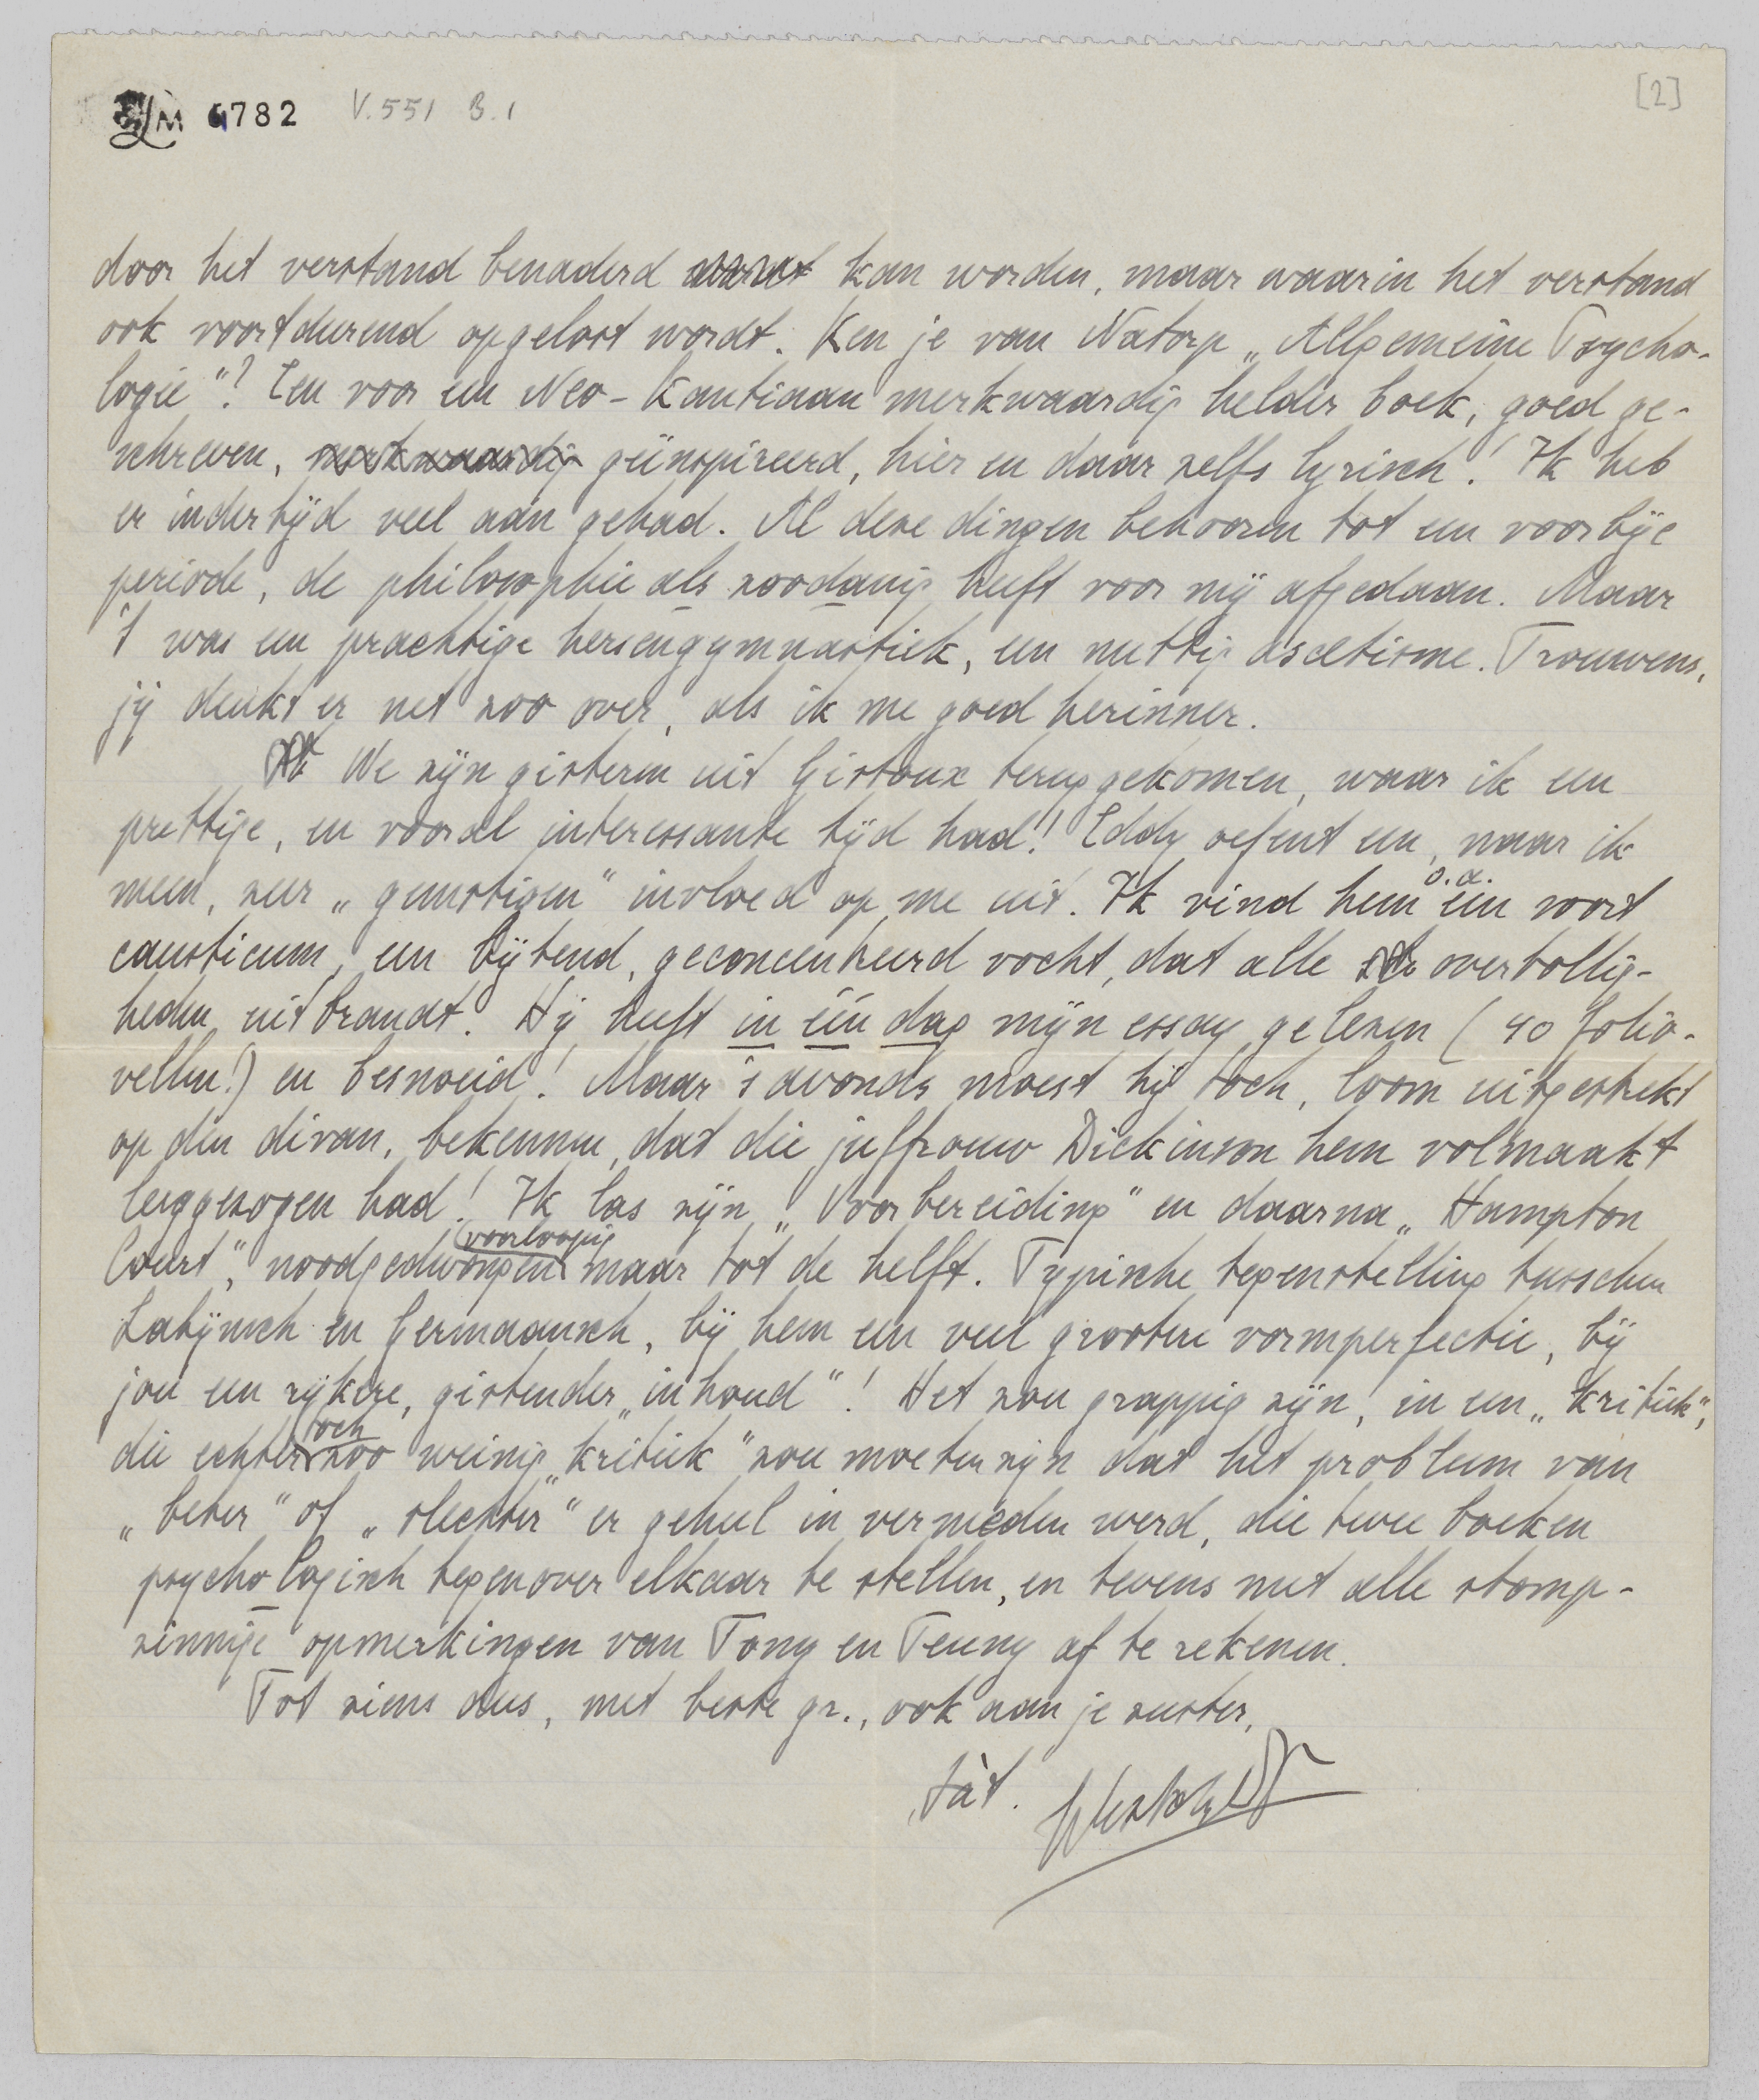 6782 V.551 B.1
[2]
door het verstand benaderd kan worden, maar waarin het verstand
ook voortdurend opgelost wordt. Ken je van Natorp „Allgemeine Psycho-
logie"? Een voor een Neo-Kantiaan merkwaardig helder boek, goed ge-
schreven, merkwaardig geïnspireerd, hier en daar zelfs lyrisch! Ik heb
er indertijd veel aan gehad. Al deze dingen behooren tot een voorbije
periode, de philosophie als zoodanig heeft voor mij afgedaan. Maar
't was een prachtige hersengymnastiek, een nuttig ascetisme. Trouwens,
jij denkt er net zoo over, als ik me goed herinner.
We zijn gisteren uit Gistoux teruggekomen, waar ik een
prettige, en vooral interessante tijd had! Eddy oefent een, naar ik
meen, zeer „gunstigen" invloed op me uit. Ik vind hem o.a. een soort
causticum, een bijtend, geconcentreerd vocht, dat alle overtollig-
heden uitbrandt. Hij heeft in één dag mijn essay gelezen (40 folio-
vellen!) en besnoeid! Maar 's avonds moest hij toch, loom uitgestrekt
op den divan, bekennen, dat die juffrouw Dickinson hem volmaakt
leeggezogen had! Ik las zijn „Voorbereiding" en daarna „Hampton
Court", noodgedwongen (voorloopig) maar tot de helft. Typische tegenstelling tusschen
Latijnsch en Germaansch, bij hem een veel grootere vormperfectie, bij
jou een rijkere, gistender „inhoud"! Het zou grappig zijn, in een „kritiek",
die echter toch zoo weinig „kritiek" zou moeten zijn dat het probleem van
„beter" of „slechter" er geheel in vermeden werd, die twee boeken
psychologisch tegenover elkaar te stellen, en tevens met alle stomp-
zinnige opmerkingen van Tony en Teuny af te rekenen.
Tot ziens dus, met beste gr., ook aan je zuster,
t.à t.